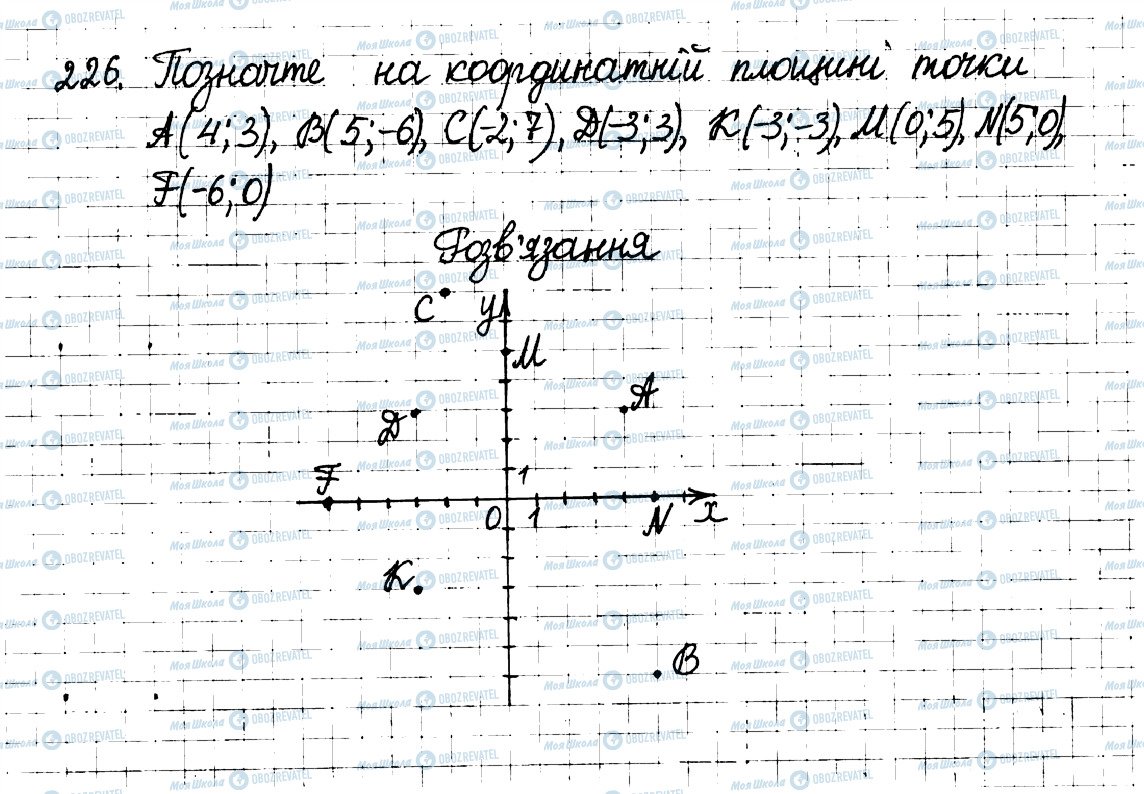 226. Позначте на координатній площині точки
A(4;3), B(5;-6), C(-2;7), D(-3;3), K(-3;-3), M(0;5), N(5;0),
F(-6;0)
Розв'язання
C y
M
A
D
F 1
0 1 N x
K
B
МояШкола OBOZREVATEL